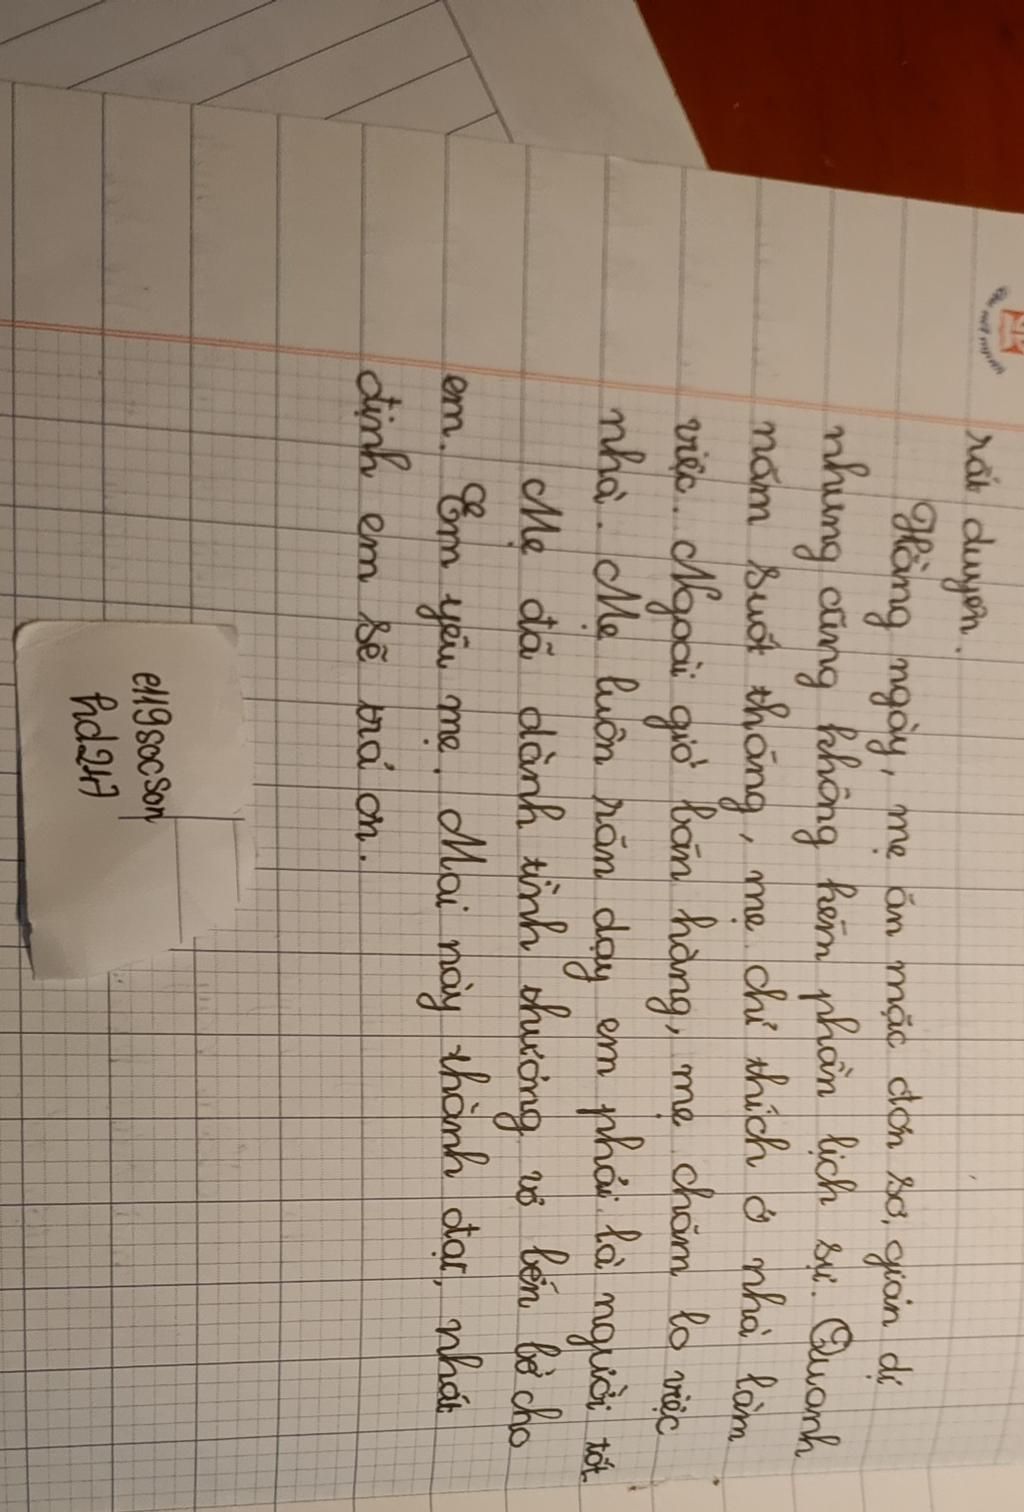 rất duyên.
Hằng ngày, mẹ ăn mặc đơn sơ, giản dị
nhưng cũng không kém phần lịch sự. Quanh
năm suốt tháng, mẹ chỉ thích ở nhà làm
việc. Ngoài giờ bán hàng, mẹ chăm lo việc
nhà. Mẹ luôn răn dạy em phải là người tốt.
Mẹ đã dành tình thương vô bến bờ cho
em. Em yêu mẹ. Mai này thành đạt, nhất
định em sẽ trả ơn.
e119socson
hd247